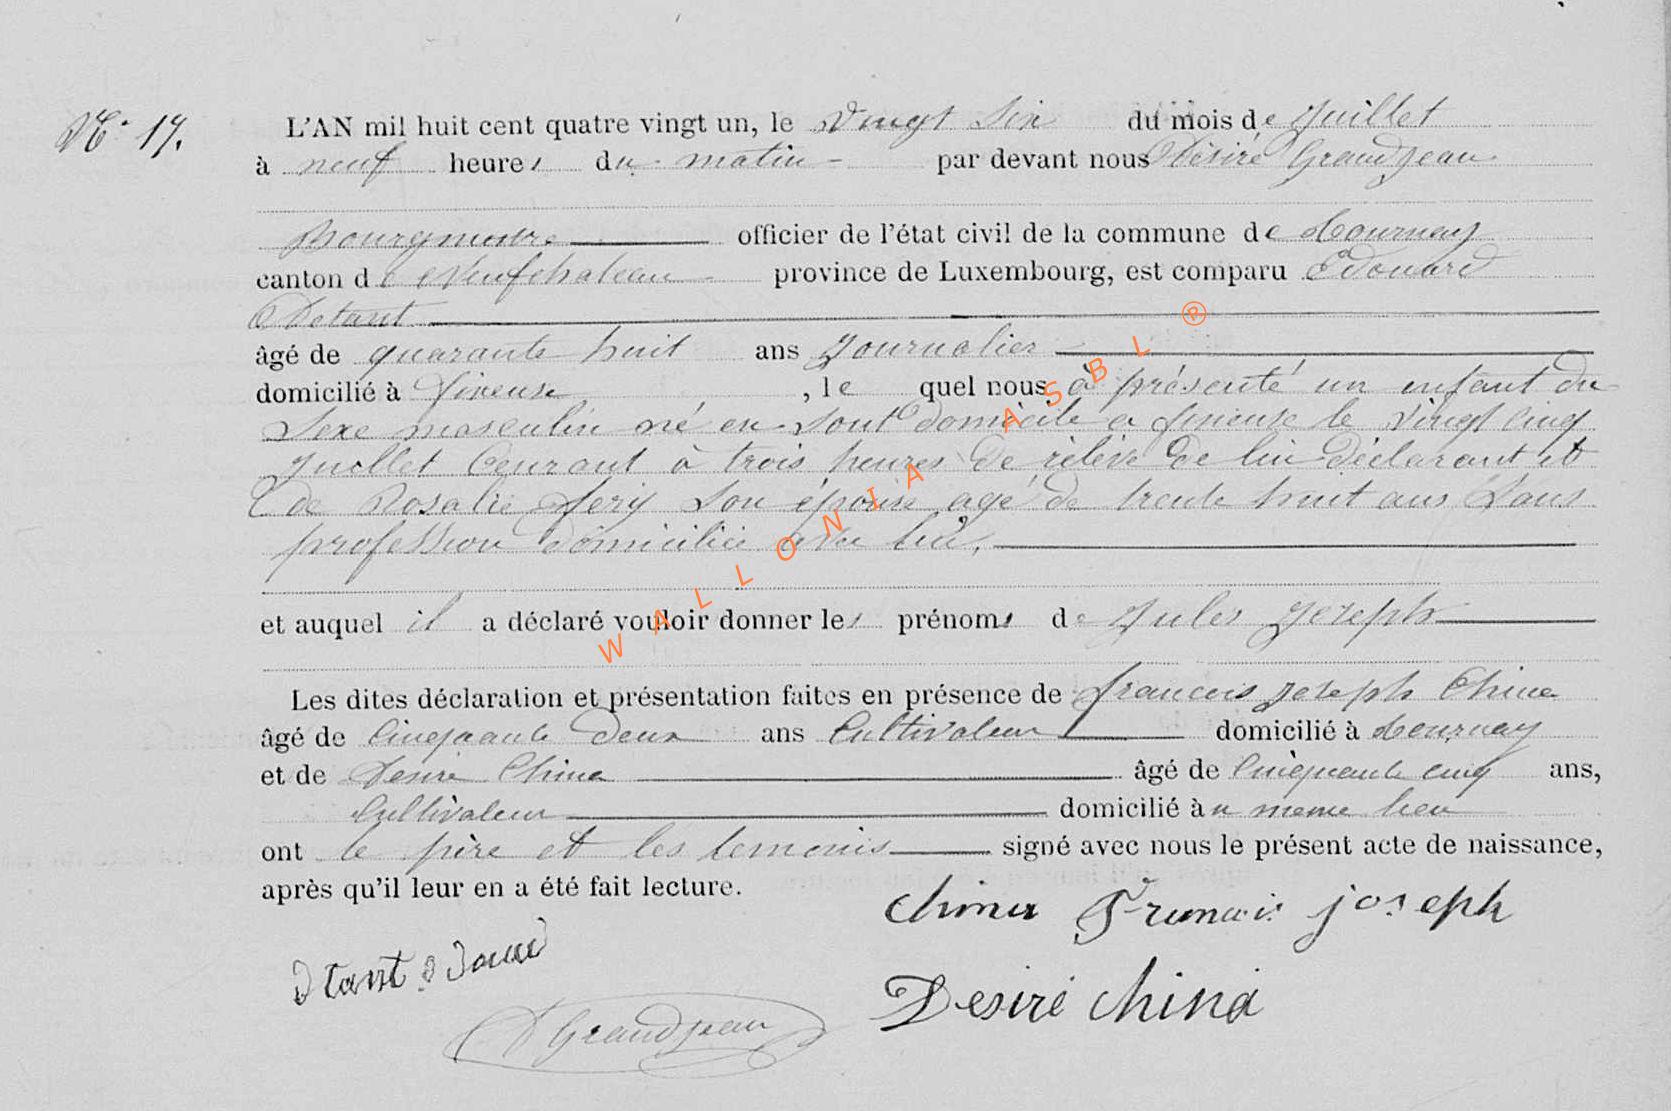 N° 17.
L'AN mil huit cent quatre vingt un, le vingt six du mois de Juillet
à neuf heures du matin par devant nous Désiré Grandjean
Bourgmestre officier de l'état civil de la commune de Tournay
canton de Neufchateau province de Luxembourg, est comparu Edouard
Detant
âgé de quarante huit ans Journalier
domicilié à fineuse, le quel nous à présenté un enfant du
sexe masculin né en sont domicile a fineuse le vingt cinq
Juillet Courant à trois heures de rélévé de lui déclarant et
de Rosalie fery son épouse agé de trente huit ans Sans
profession domiciliée avec lui,
et auquel il a déclaré vouloir donner les prénoms de Jules Joseph
Les dites déclaration et présentation faites en présence de francois Joseph China
âgé de Cinquante deux ans Cultivateur domicilié à Tournay
et de Desiré China âgé de Cinquante cinq ans,
Cultivateur domicilié à u meme lieu
ont le père et les temonis signé avec nous le présent acte de naissance,
après qu'il leur en a été fait lecture.
China Francois joseph
Desiré china
D Grandjean
WALLONIA ASBL ®